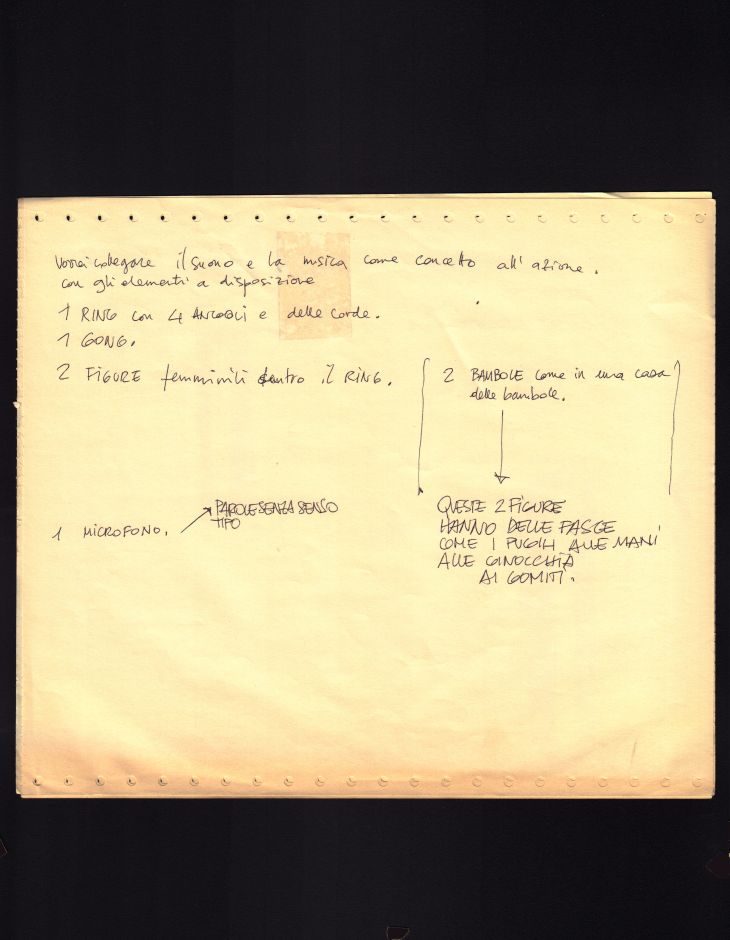 Vorrei collegare il suono e la musica come concetto all'azione.
con gli elementi a disposizione
1 RING con 4 ANGOLI e delle corde.
1 GONG.
2 FIGURE femminili dentro il RING.
2 BAMBOLE come in una casa
delle bambole.
1 MICROFONO.
PAROLE SENZA SENSO
TIPO
QUESTE 2 FIGURE
HANNO DELLE FASCE
COME I PUGILI ALLE MANI
ALLE GINOCCHIA
AI GOMITI.